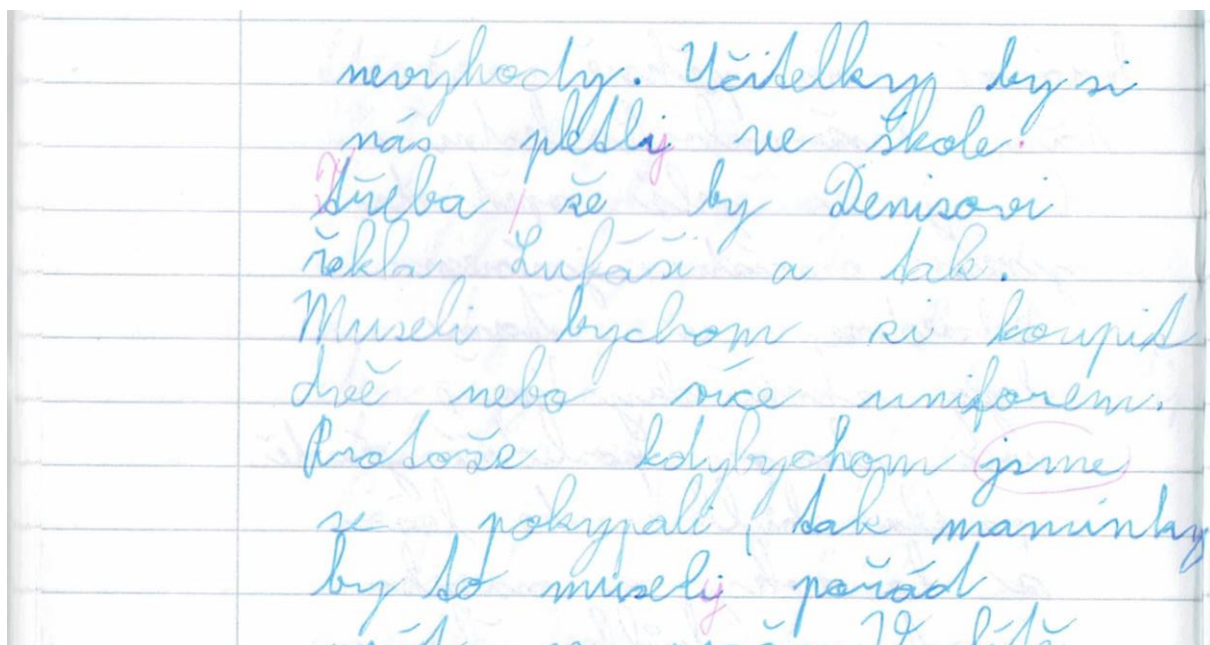 nevýhody. Učitelky by si
nás pletli ve škole.
třeba, že by Denisovi
řekla Lukáši a tak.
Museli bychom si koupit
dvě nebo více uniforem.
Protože kdybychom jsme
se pokypali, tak maminky
by to museli pořád
V létě